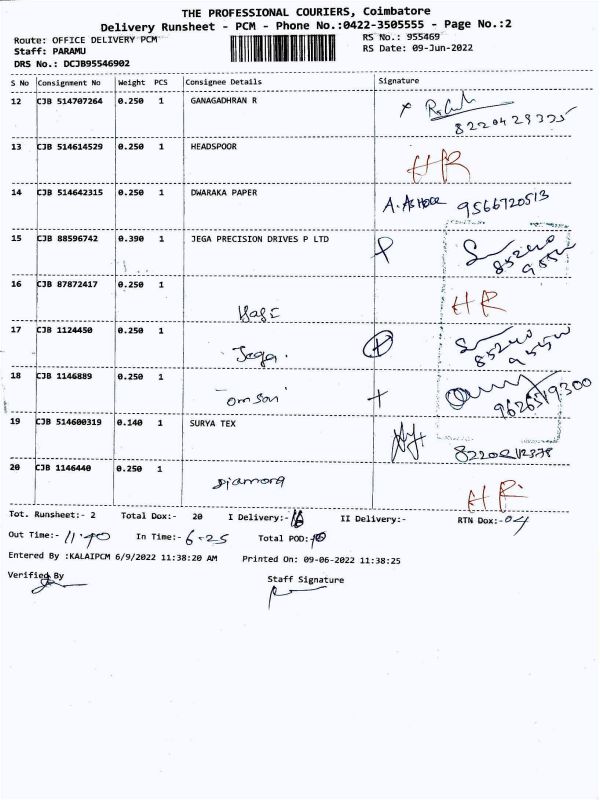 THE PROFESSIONAL COURIERS, Coimbatore
Delivery Runsheet - PCM - Phone No.:0422-3505555 - Page No.:2
Route: OFFICE DELIVERY PCM
RS No.: 955469
Staff: PARAMU
RS Date: 09-Jun-2022
DRS No.: DCJB95546902
S No Consignment No Weight PCS Consignee Details Signature
12 CJB 514707264 0.250 1 GANAGADHRAN R
8220429335
13 CJB 514614529 0.250 1 HEADSPOOR HR
14 CJB 514642315 0.250 1 DWARAKA PAPER A. ASHOK 9566720513
15 CJB 88596742 0.390 1 JEGA PRECISION DRIVES P LTD
16 CJB 87872417 0.250 1 HR
17 CJB 1124450 0.250 1
Jega.
18 CJB 1146889 0.250 1
Tomson 9626519300
19 CJB 514600319 0.140 1 SURYA TEX
20 CJB 1146440 0.250 1
HR
Tot. Runsheet:- 2 Total Dox:- 20 I Delivery:-16 II Delivery:- RTN Dox:-04
Out Time:- 11.40 In Time:- 6-25 Total POD:-
Entered By :KALAIPCM 6/9/2022 11:38:20 AM Printed On: 09-06-2022 11:38:25
Verified By Staff Signature